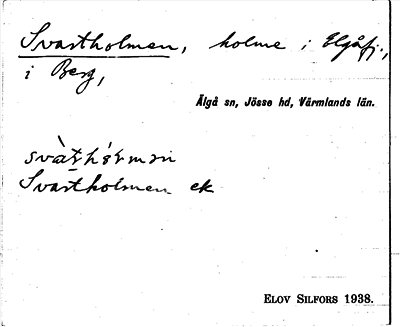 Svartholmen, holme i Elgåfj.,
i Berg,
Älgå sn, Jösse hd, Värmlands län.
Svartholmen ek
ELOV SILFORS 1938.